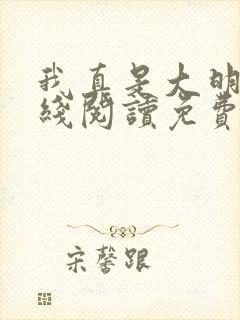 我真是大明
綫閱讀免費
宋馨跟